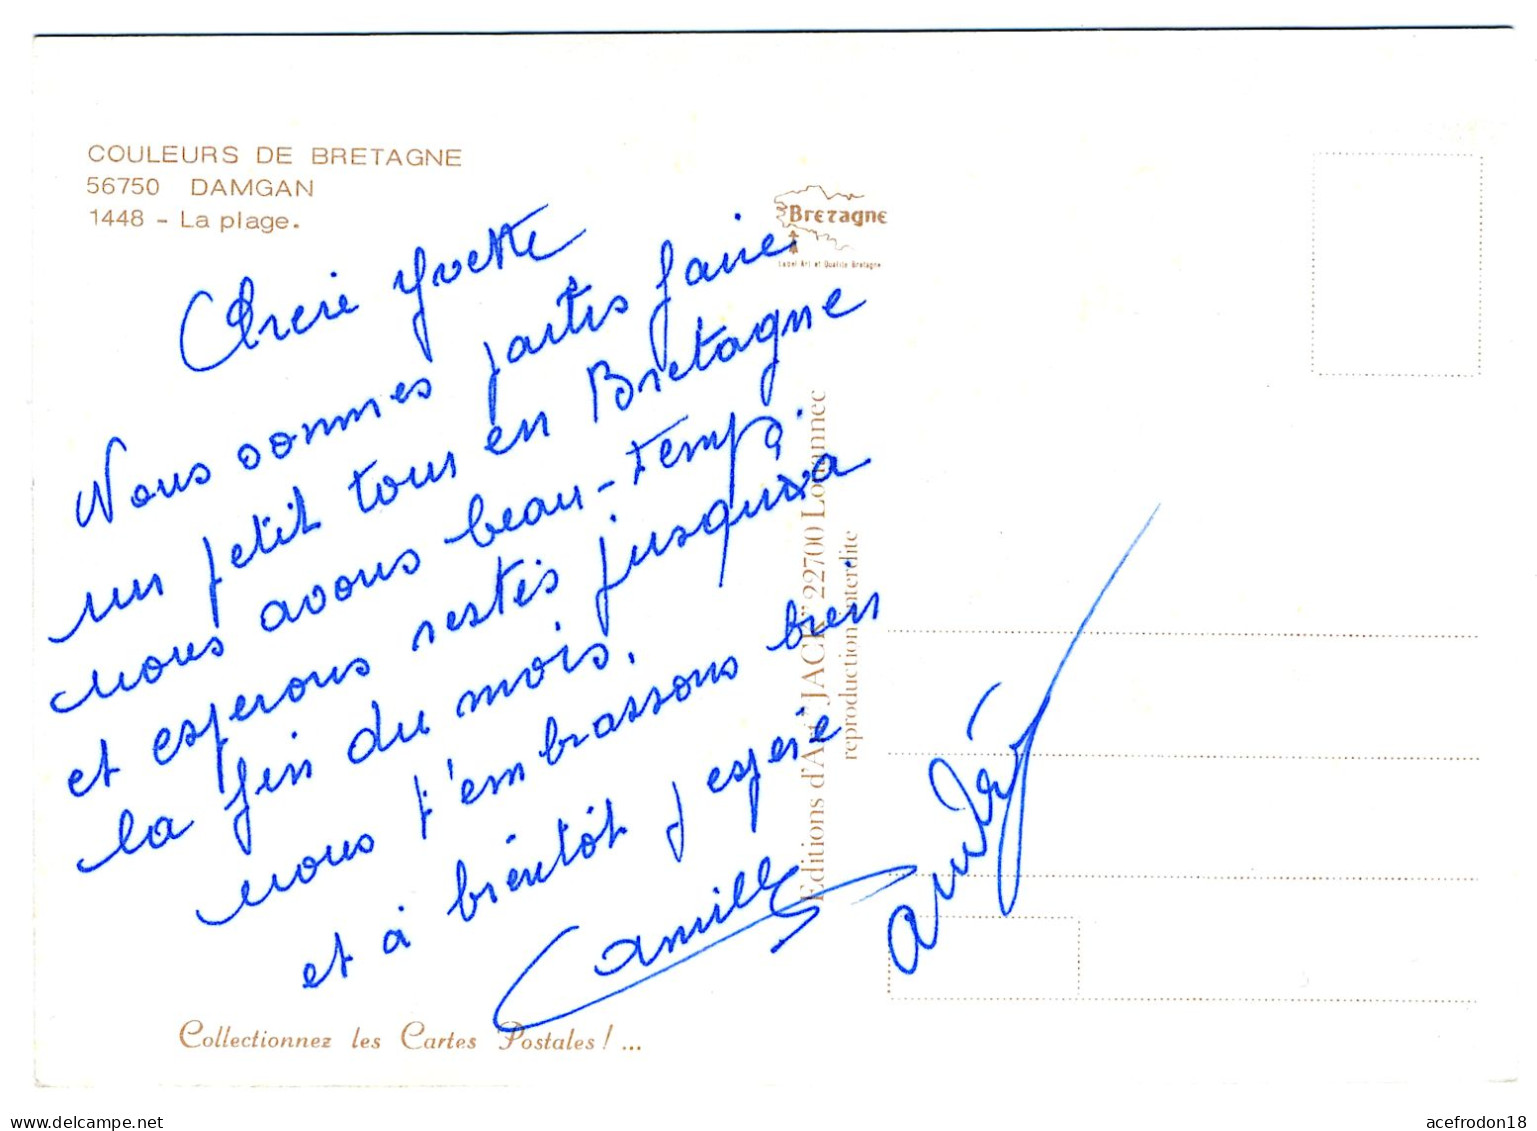 COULEURS DE BRETAGNE
56750 DAMGAN
1448 - La plage.
Bretagne
Label Art et Qualité Bretagne
Chère Yvette
Nous sommes partis faire
un petit tour en Bretagne
nous avons beau-temps
et esperons restés jusqu'à
la fin du mois.
nous t'embrassons bien
et à bientôt j'espère
Camille
André
Editions d'Art "JACK" 22700 Louannec
reproduction interdite
Collectionnez les Cartes Postales ! ...
acefrodon18